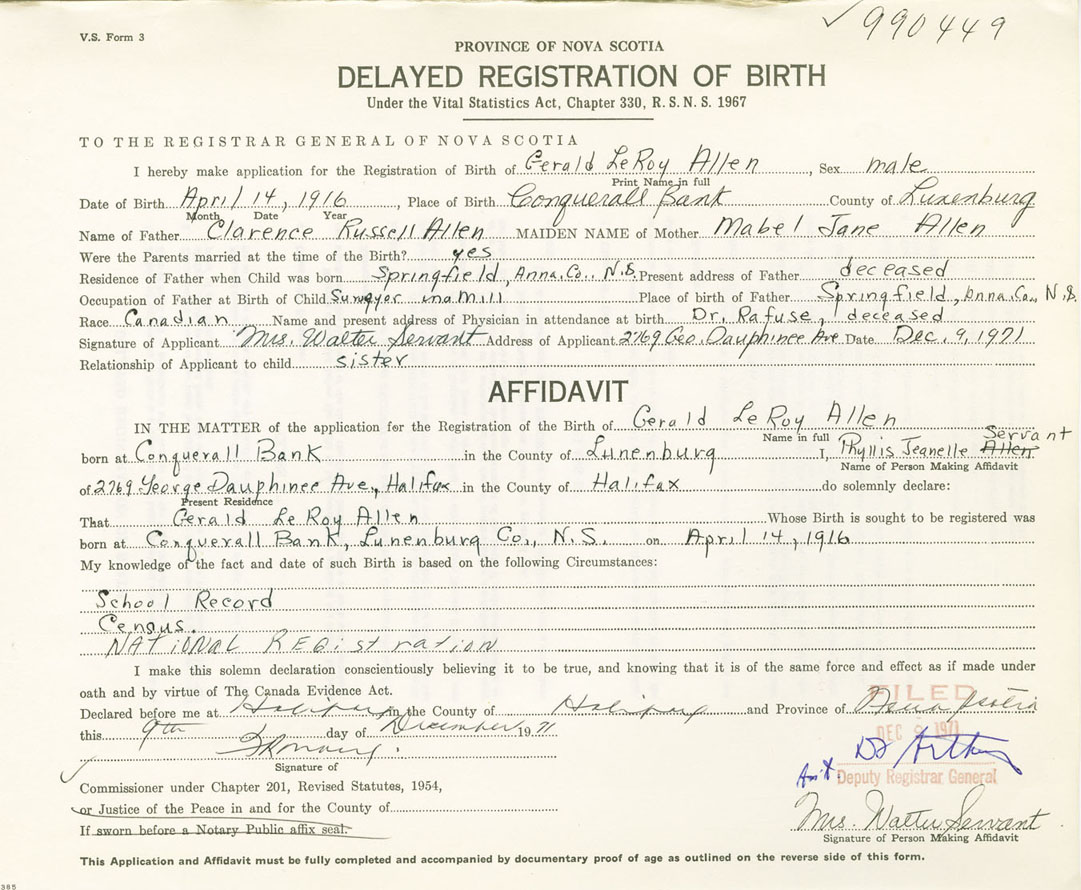 V.S. Form 3
990449
PROVINCE OF NOVA SCOTIA
DELAYED REGISTRATION OF BIRTH
Under the Vital Statistics Act, Chapter 330, R. S. N. S. 1967
TO THE REGISTRAR GENERAL OF NOVA SCOTIA
I hereby make application for the Registration of Birth of Gerald LeRoy Allen, Sex male
Print Name in full
Date of Birth April 14, 1916, Place of Birth Conquerall Bank County of Lunenburg
Month Date Year
Name of Father Clarence Russell Allen MAIDEN NAME of Mother Mabel Jane Allen
Were the Parents married at the time of the Birth? yes
Residence of Father when Child was born Springfield, Anna. Co., N.S. Present address of Father deceased
Occupation of Father at Birth of Child Surveyor in a Mill Place of birth of Father Springfield, Anna. Co., N.S.
Race Canadian Name and present address of Physician in attendance at birth Dr. Rafuse, deceased
Signature of Applicant Mrs. Walter Servant Address of Applicant 2769 Geo. Dauphinee Ave Date Dec. 9, 1971
Relationship of Applicant to child sister
AFFIDAVIT
IN THE MATTER of the application for the Registration of the Birth of Gerald LeRoy Allen
Name in full Servant
born at Conquerall Bank in the County of Lunenburg I, Phyllis Jeanelle Allen
Name of Person Making Affidavit
of 2769 George Dauphinee Ave., Halifax in the County of Halifax do solemnly declare:
Present Residence
That Gerald LeRoy Allen Whose Birth is sought to be registered was
born at Conquerall Bank, Lunenburg Co., N.S. on April 14, 1916
My knowledge of the fact and date of such Birth is based on the following Circumstances:
School Record
Census.
NATIONAL REGistration
I make this solemn declaration conscientiously believing it to be true, and knowing that it is of the same force and effect as if made under
oath and by virtue of The Canada Evidence Act.
FILED
Declared before me at Halifax in the County of Halifax and Province of Nova Scotia
DEC 9 1971
this 9th day of December 1971
Signature of
Ass't. Deputy Registrar General
Commissioner under Chapter 201, Revised Statutes, 1954,
or Justice of the Peace in and for the County of
Mrs. Walter Servant
If sworn before a Notary Public affix seal.
Signature of Person Making Affidavit
This Application and Affidavit must be fully completed and accompanied by documentary proof of age as outlined on the reverse side of this form.
385